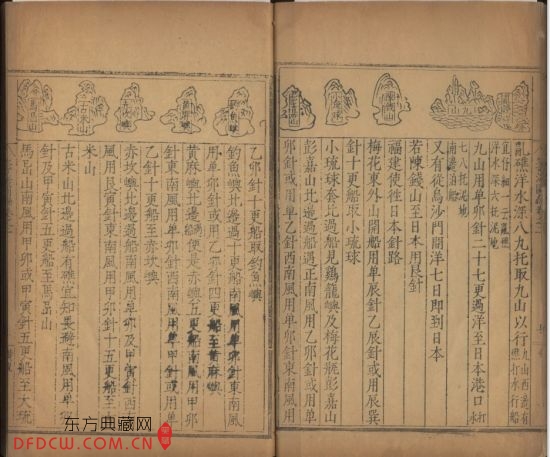 亂礁洋水深八九托取九山以行 九山西邊有
礁打水行船
宜仔細一云亂礁
洋水深六托泥地
九山用单卯針二十七更過洋至日本港口 打水
七八托泥地
南邊泊船
又有從烏沙門開洋七日即到日本
若陳錢山至日本用艮針
福建使往日本針路
梅花東外山開船用单辰針乙辰針或用辰巽
針十更船取小琉球
小琉球套北過船見鷄籠嶼及梅花瓶彭嘉山
彭嘉山北邊過船遇正南風用乙卯針或用单
卯針或用单乙針西南風用单卯針東南風用
九山
乙卯針十更船取釣魚嶼
釣魚嶼北邊過十更船南風用单卯針東南風
用单卯針或用乙卯針四更船至黄麻嶼
黄麻嶼北邊過船便是赤嶼五更船南風用甲卯
針東南風用单卯針西南風用单甲針或用单
乙針十更船至赤坎嶼
赤坎嶼北邊過船南風用单卯及甲寅針西南
風用艮寅針東南風用甲卯針十五更船至古
米山
古米山北邊過船有礁宜知畏避南風用单卯
針及甲寅針五更船至馬岜山
馬岜山南風用甲卯或甲寅針五更船至大琉
釣魚嶼
黄麻嶼
赤坎嶼
古米山
馬岜山
东方典藏网
DFDCW.COM.CN